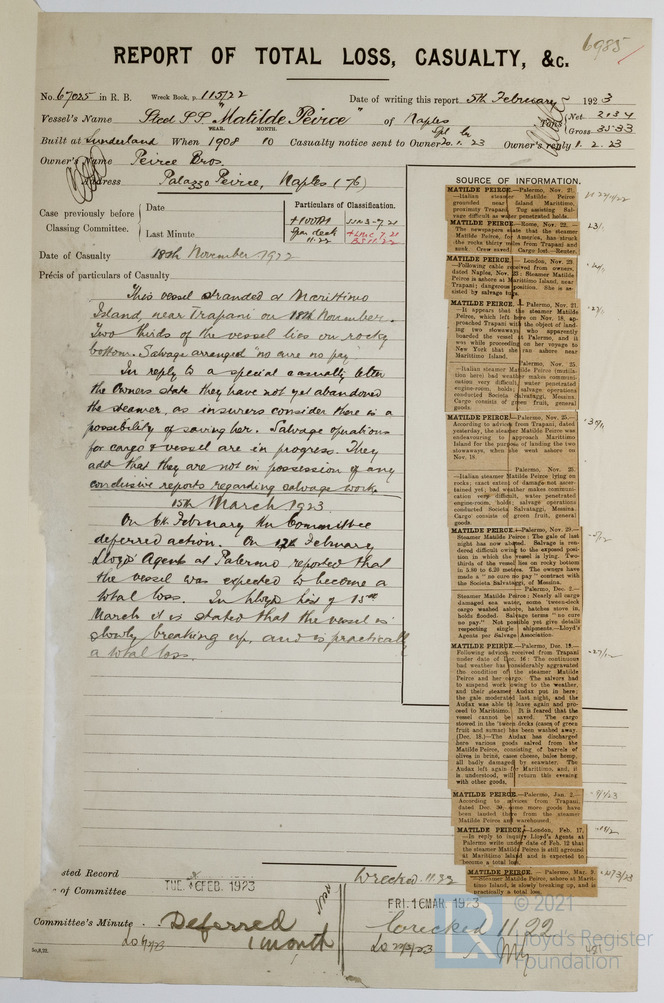 6985
REPORT OF TOTAL LOSS, CASUALTY, &c.
No. 67025 in R. B. Wreck Book, p. 115/22 Date of writing this report 5th February 1923
Vessel's Name Steel S.S. "Matilde Peirce" of Naples Tons Net 2134
Gross 3533
YEAR. MONTH.
Built at Sunderland When 1908 10 Casualty notice sent to Owner 20.1.23 Owner's reply 1.2.23
Owner's Name Peirce Bros.
Address Palazzo Peirce, Naples (76)
SOURCE OF INFORMATION.
Case previously before
Classing Committee.
Date
Last Minute
Particulars of Classification.
+100A1
Spar deck
11.22
Date of Casualty 18th November 1922
Précis of particulars of Casualty
This vessel stranded at Marittimo
Island, near Trapani on 18th November.
Two thirds of the vessel lies on rocky
bottom. Salvage arranged "no cure no pay."
In reply to a special casualty letter
the Owners state they have not yet abandoned
the steamer, as insurers consider there is a
possibility of saving her. Salvage operations
for cargo & vessel are in progress. They
add that they are not in possession of any
conclusive reports regarding salvage work.
15th March 1923.
On 6th February the Committee
deferred action. On 17th February
Lloyds Agents at Palermo reported that
the vessel was expected to become a
total loss. In Lloyds List of 13th
March it is stated that the vessel is
slowly breaking up, and is practically
a total loss.
MATILDE PEIRCE.—Palermo, Nov. 21.
—Italian steamer Matilde Peirce
grounded near Island Maritimo,
proximity Trapani. Tug assisting. Salvage
difficult as water penetrated holds.
MATILDE PEIRCE.—Rome, Nov. 22.—
The newspapers state that the steamer
Matilde Peirce, for America, has struck
the rocks thirty miles from Trapani and
sunk. Crew saved. Cargo lost.—Reuter.
MATILDE PEIRCE.—London, Nov. 23.
—Following cable received from owners,
dated Naples, Nov. 23: Steamer Matilde
Peirce is ashore at Maritimo Island, near
Trapani; dangerous position. She is assisted
by salvage tugs.
MATILDE PEIRCE.—Palermo, Nov. 21.
—It appears that the steamer Matilde
Peirce, which left here on Nov. 18, approached
Trapani with the object of landing
two stowaways, who apparently
boarded the vessel at Palermo, and it
was while proceeding on her voyage to
New York that she ran ashore near
Maritimo Island.
Palermo, Nov. 25.
—Italian steamer Matilde Peirce (mutilation
here) had weather makes communication
very difficult, water penetrated
engine-room, holds; salvage operations
conducted Società Salvataggi, Messina.
Cargo consists of green fruit, general
goods.
MATILDE PEIRCE.—Palermo, Nov. 25.—
According to advices from Trapani, dated
yesterday, the steamer Matilde Peirce was
endeavouring to approach Maritimo
Island for the purpose of landing the two
stowaways, when she went ashore on
Nov. 18.
Palermo, Nov. 25.
—Italian steamer Matilde Peirce lying on
rocks; exact extent of damage not ascertained
yet; bad weather makes communication
very difficult, water penetrated
engine-room, holds; salvage operations
conducted Società Salvataggi, Messina.
Cargo consists of green fruit, general
goods.
MATILDE PEIRCE.—Palermo, Nov. 29.—
Steamer Matilde Peirce: The gale of last
night has now abated. Salvage is rendered
difficult owing to the exposed position
in which the vessel is lying. Two-thirds
of the vessel lies on rocky bottom
in 5.80 to 6.20 metres. The owners have
made a "no cure no pay" contract with
the Societa Salvataggi, of Messina.
Palermo, Dec. 2.—
Steamer Matilde Peirce: Nearly all cargo
damaged sea water, some 'tween-deck
cargo washed ashore, hatches stove in,
holds flooded. Salvage terms "no cure
no pay." Not possible yet give details
respecting single shipments.—Lloyd's
Agents per Salvage Association.
MATILDE PEIRCE.—Palermo, Dec. 18.—
Following advices received from Trapani
under date of Dec. 16: The continuous
bad weather has considerably aggravated
the condition of the steamer Matilde
Peirce and her cargo. The salvors had
to suspend work owing to the weather,
and their steamer Audax put in here;
the gale moderated last night, and the
Audax was able to leave again and proceed
to Maritimo. It is feared that the
vessel cannot be saved. The cargo
stowed in the 'tween decks (cases of green
fruit and sumac) has been washed away.
(Dec. 18.)—The Audax has discharged
here various goods salved from the
Matilde Peirce, consisting of barrels of
olives in brine, cases cheese, bales hemp,
all badly damaged by seawater. The
Audax left again for Maritimo, and, it
is understood, will return this evening
with other goods.
MATILDE PEIRCE.—Palermo, Jan. 2.—
According to advices from Trapani,
dated Dec. 30, some more goods have
been landed there from the steamer
Matilde Peirce and warehoused.
MATILDE PEIRCE.—London, Feb. 17.
—In reply to inquiry Lloyd's Agents at
Palermo write under date of Feb. 12 that
the steamer Matilde Peirce is still aground
at Maritimo Island and is expected to
become a total loss.
MATILDE PEIRCE.—Palermo, Mar. 9.
—Steamer Matilde Peirce, ashore at Maritimo
Island, is slowly breaking up, and is
practically a total loss.
sted Record Wrecked. 11.22
of Committee TUE. 6 FEB. 1923 FRI. 16 MAR. 1923
Committee's Minute Deferred 1 month Wrecked 11.22
© 2021
Lloyd's Register
Foundation